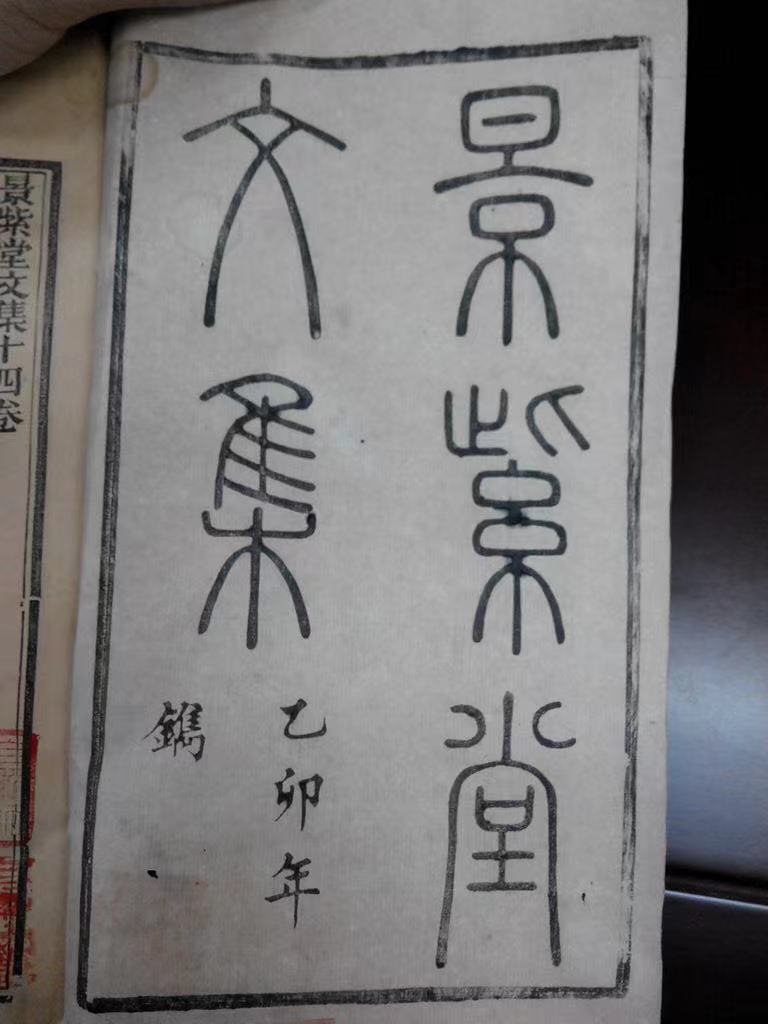 景紫堂
文集
乙卯年
鐫
景紫堂文集十四卷